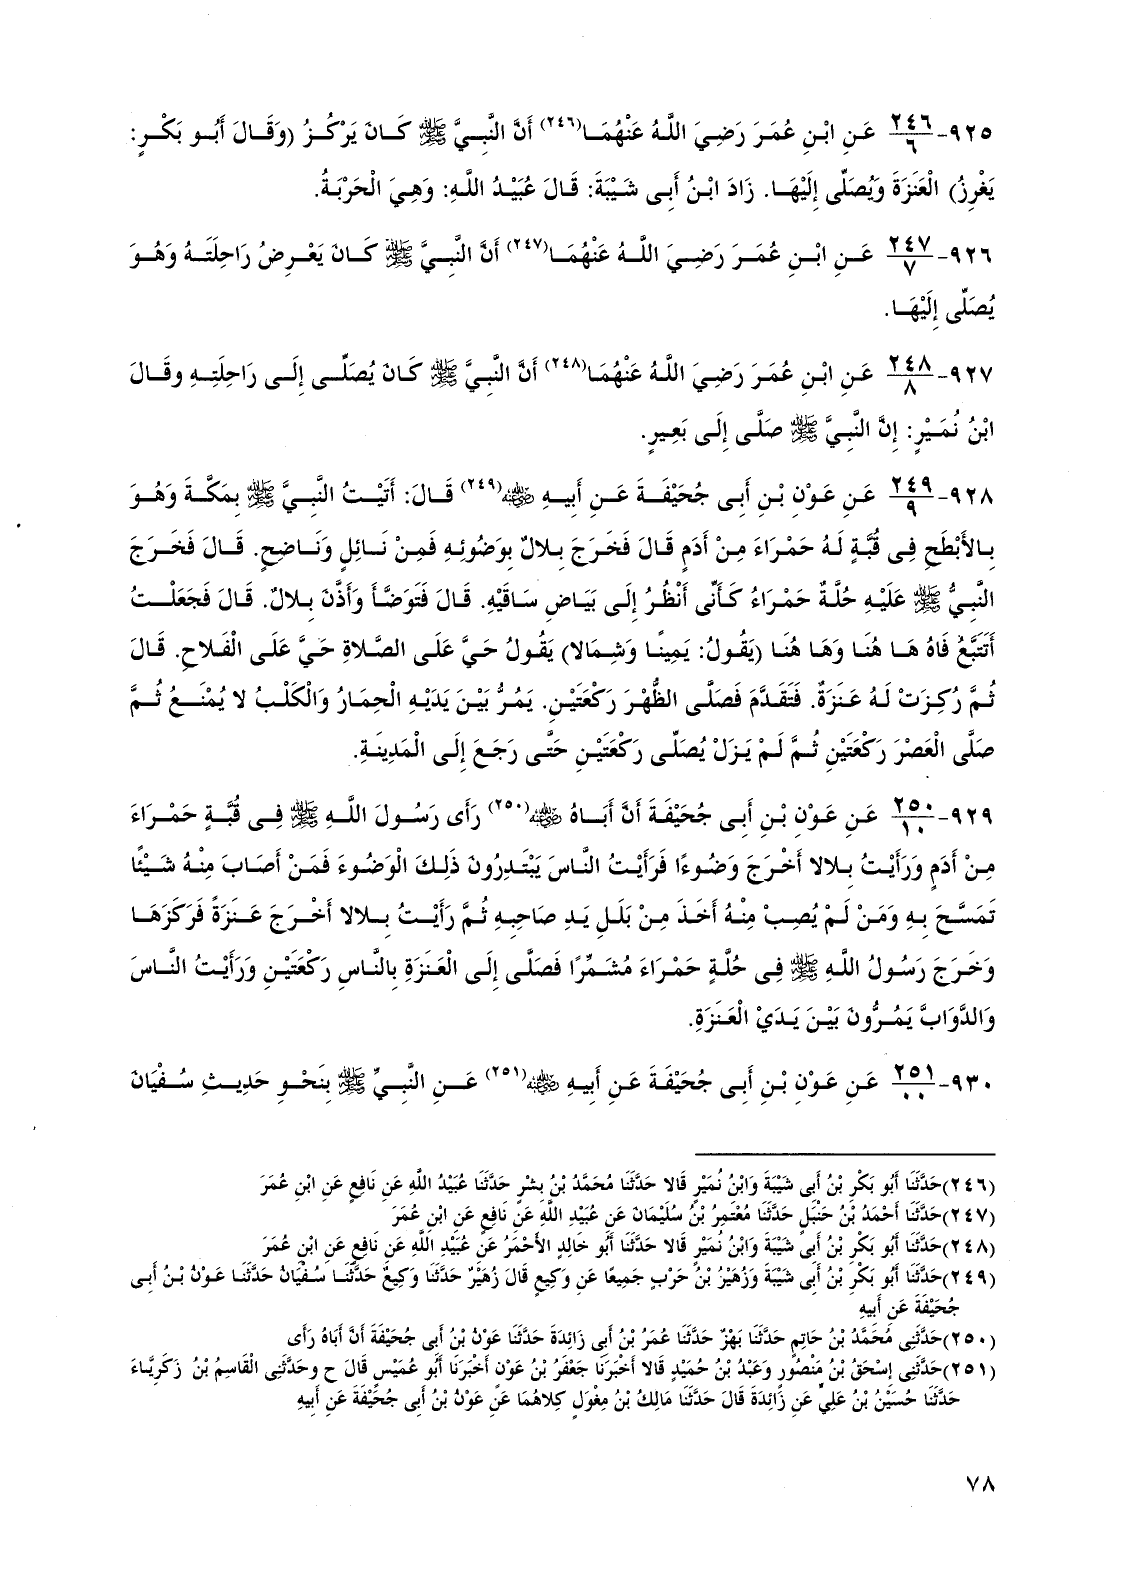 ٩٢٥-٢٤٦/٦ عَنِ ابْنِ عُمَرَ رَضِيَ اللَّهُ عَنْهُمَا(٢٤٦) أَنَّ النَّبِيَّ ﷺ كَانَ يَرْكُزُ (وَقَالَ أَبُو بَكْرٍ:
يَغْرِزُ) الْعَنَزَةَ وَيُصَلِّى إِلَيْهَا. زَادَ ابْنُ أَبِى شَيْبَةَ: قَالَ عُبَيْدُ اللَّهِ: وَهِيَ الْحَرْبَةُ.
٩٢٦-٢٤٧/٧ عَنِ ابْنِ عُمَرَ رَضِيَ اللَّهُ عَنْهُمَا(٢٤٧) أَنَّ النَّبِيَّ ﷺ كَانَ يَعْرِضُ رَاحِلَتَهُ وَهُوَ
يُصَلِّى إِلَيْهَا.
٩٢٧-٢٤٨/٨ عَنِ ابْنِ عُمَرَ رَضِيَ اللَّهُ عَنْهُمَا(٢٤٨) أَنَّ النَّبِيَّ ﷺ كَانَ يُصَلِّى إِلَى رَاحِلَتِهِ وقَالَ
ابْنُ نُمَيْرٍ: إِنَّ النَّبِيَّ ﷺ صَلَّى إِلَى بَعِيرٍ.
٩٢٨-٢٤٩/٩ عَنِ عَوْن بْنِ أَبِى جُحَيْفَةَ عَنِ أَبِيهِ ﷺ(٢٤٩) قَالَ: أَتَيْتُ النَّبِيَّ ﷺ بِمَكَّةَ وَهُوَ
بِالأَبْطَحِ فِى قُبَّةٍ لَهُ حَمْرَاءَ مِنْ أَدَمٍ قَالَ فَخَرَجَ بِلالٌ بِوَضُوئِهِ فَمِنْ نَائِلٍ وَنَاضِحٍ. قَالَ فَخَرَجَ
النَّبِيُّ ﷺ عَلَيْهِ حُلَّةٌ حَمْرَاءُ كَأَنِّى أَنْظُرُ إِلَى بَيَاضِ سَاقَيْهِ. قَالَ فَتَوَضَّأَ وَأَذَّنَ بِلالٌ. قَالَ فَجَعَلْتُ
أَتَتَبَّعُ فَاهُ هَا هُنَا وَهَا هُنَا (يَقُولُ: يَمِينًا وَشِمَالا) يَقُولُ حَيَّ عَلَى الصَّلاةِ حَيَّ عَلَى الْفَلاحِ. قَالَ
ثُمَّ رُكِزَتْ لَهُ عَنَزَةٌ. فَتَقَدَّمَ فَصَلَّى الظُّهْرَ رَكْعَتَيْنِ. يَمُرُّ بَيْنَ يَدَيْهِ الْحِمَارُ وَالْكَلْبُ لا يُمْنَعُ ثُمَّ
صَلَّى الْعَصْرَ رَكْعَتَيْنِ ثُمَّ لَمْ يَزَلْ يُصَلِّى رَكْعَتَيْنِ حَتَّى رَجَعَ إِلَى الْمَدِينَةِ.
٩٢٩-٢٥٠/١٠ عَنِ عَوْنِ بْنِ أَبِى جُحَيْفَةَ أَنَّ أَبَاهُ ﷺ(٢٥٠) رَأَى رَسُولَ اللَّهِ ﷺ فِى قُبَّةٍ حَمْرَاءَ
مِنْ أَدَمٍ وَرَأَيْتُ بِلالا أَخْرَجَ وَضُوءًا فَرَأَيْتُ النَّاسَ يَبْتَدِرُونَ ذَلِكَ الْوَضُوءَ فَمَنْ أَصَابَ مِنْهُ شَيْئًا
تَمَسَّحَ بِهِ وَمَنْ لَمْ يُصِبْ مِنْهُ أَخَذَ مِنْ بَلَلِ يَدِ صَاحِبِهِ ثُمَّ رَأَيْتُ بِلالا أَخْرَجَ عَنَزَةً فَرَكَزَهَا
وَخَرَجَ رَسُولُ اللَّهِ ﷺ فِى حُلَّةٍ حَمْرَاءَ مُشَمِّرًا فَصَلَّى إِلَى الْعَنَزَةِ بِالنَّاسِ رَكْعَتَيْنِ وَرَأَيْتُ النَّاسَ
وَالدَّوَابَّ يَمُرُّونَ بَيْنَ يَدَيْ الْعَنَزَةِ.
٩٣٠-٢٥١/٠٠ عَنِ عَوْنِ بْنِ أَبِى جُحَيْفَةَ عَنِ أَبِيهِ ﷺ(٢٥١) عَنِ النَّبِيِّ ﷺ بِنَحْوِ حَدِيثِ سُفْيَانَ
(٢٤٦)حَدَّثَنَا أَبُو بَكْرِ بْنُ أَبِى شَيْبَةَ وَابْنُ نُمَيْرٍ قَالا حَدَّثَنَا مُحَمَّدُ بْنُ بِشْرٍ حَدَّثَنَا عُبَيْدُ اللَّهِ عَنِ نَافِعٍ عَنِ ابْنِ عُمَرَ
(٢٤٧)حَدَّثَنَا أَحْمَدُ بْنُ حَنْبَلٍ حَدَّثَنَا مُعْتَمِرُ بْنُ سُلَيْمَانَ عَنِ عُبَيْدِ اللَّهِ عَنِ نَافِعٍ عَنِ ابْنِ عُمَرَ
(٢٤٨)حَدَّثَنَا أَبُو بَكْرِ بْنُ أَبِى شَيْبَةَ وَابْنُ نُمَيْرٍ قَالا حَدَّثَنَا أَبُو خَالِدٍ الأَحْمَرُ عَنِ عُبَيْدِ اللَّهِ عَنِ نَافِعٍ عَنِ ابْنِ عُمَرَ
(٢٤٩)حَدَّثَنَا أَبُو بَكْرِ بْنُ أَبِى شَيْبَةَ وَزُهَيْرُ بْنُ حَرْبٍ جَمِيعًا عَنِ وَكِيعٍ قَالَ زُهَيْرٌ حَدَّثَنَا وَكِيعٌ حَدَّثَنَا سُفْيَانُ حَدَّثَنَا عَوْنُ بْنُ أَبِى
جُحَيْفَةَ عَنِ أَبِيهِ
(٢٥٠)حَدَّثَنِى مُحَمَّدُ بْنُ حَاتِمٍ حَدَّثَنَا بَهْزٌ حَدَّثَنَا عُمَرُ بْنُ أَبِى زَائِدَةَ حَدَّثَنَا عَوْنُ بْنُ أَبِى جُحَيْفَةَ أَنَّ أَبَاهُ رَأَى
(٢٥١)حَدَّثَنِى إِسْحَقُ بْنُ مَنْصُورٍ وَعَبْدُ بْنُ حُمَيْدٍ قَالا أَخْبَرَنَا جَعْفَرُ بْنُ عَوْنٍ أَخْبَرَنَا أَبُو عُمَيْسٍ قَالَ ح وحَدَّثَنِى الْقَاسِمُ بْنُ زَكَرِيَّاءَ
حَدَّثَنَا حُسَيْنُ بْنُ عَلِيٍّ عَنِ زَائِدَةَ قَالَ حَدَّثَنَا مَالِكُ بْنُ مِغْوَلٍ كِلاهُمَا عَنِ عَوْنِ بْنُ أَبِى جُحَيْفَةَ عَنِ أَبِيهِ
٧٨